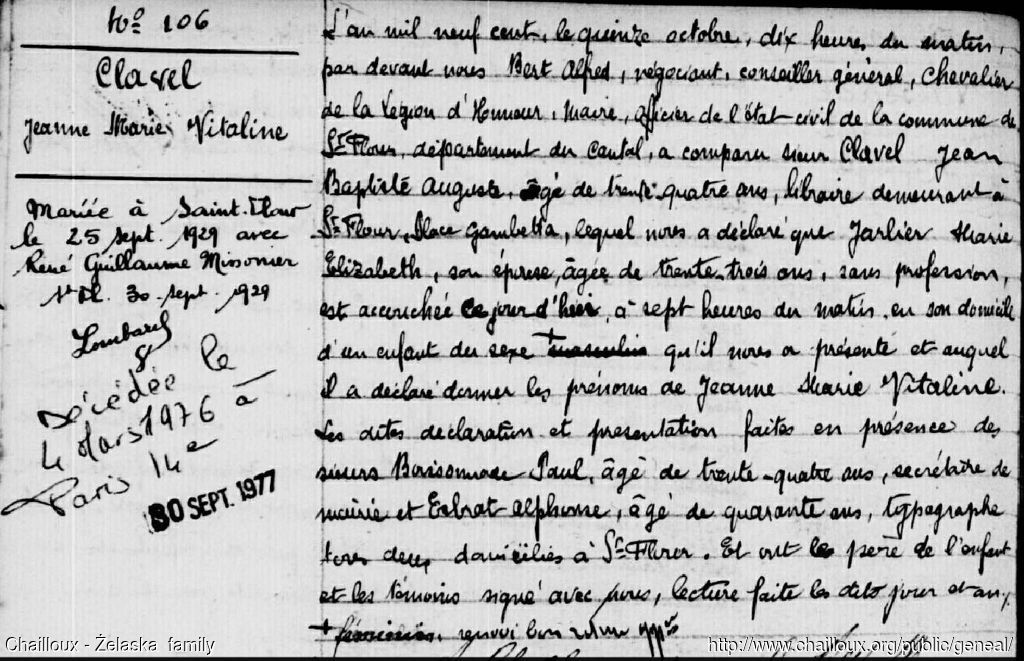 No 106
Clavel
Jeanne Marie Vitaline
Mariée à Saint-Flour
le 25 sept. 1929 avec
René Guillaume Missonier
30 - sept. 1929
Lombard
Décédée le
4 Mars 1976 à
Paris 14e
30 SEPT. 1977
L'an mil neuf cent, le quinze octobre, dix heures du matin,
par devant nous Bert Alfred, négociant, conseiller général, Chevalier
de la Légion d'Honneur, Maire, officier de l'état-civil de la commune de
St-Flour, département du Cantal, a comparu sieur Clavel Jean
Baptiste Auguste, âgé de trente-quatre ans, libraire demeurant à
St-Flour, Place Gambetta, lequel nous a déclaré que Jarlier Marie
Elizabeth, son épouse, âgée de trente-trois ans, sans profession,
est accouchée ce jour d'hier, à sept heures du matin, en son domicile
d'un enfant du sexe + masculin qu'il nous a présenté et auquel
il a déclaré donner les prénoms de Jeanne Marie Vitaline.
Les dites déclaration et présentation faites en présence des
sieurs Boissonnade Paul, âgé de trente-quatre ans, secrétaire de
mairie et Alphonse, âgé de quarante ans, typographe
tous deux domiciliés à St-Flour. Et ont le père de l'enfant
et les témoins signé avec nous, lecture faite les dits jour et an,
+ féminin, renvoi bon
Chailloux - Żelaska family
http://www.chailloux.org/public/geneal/